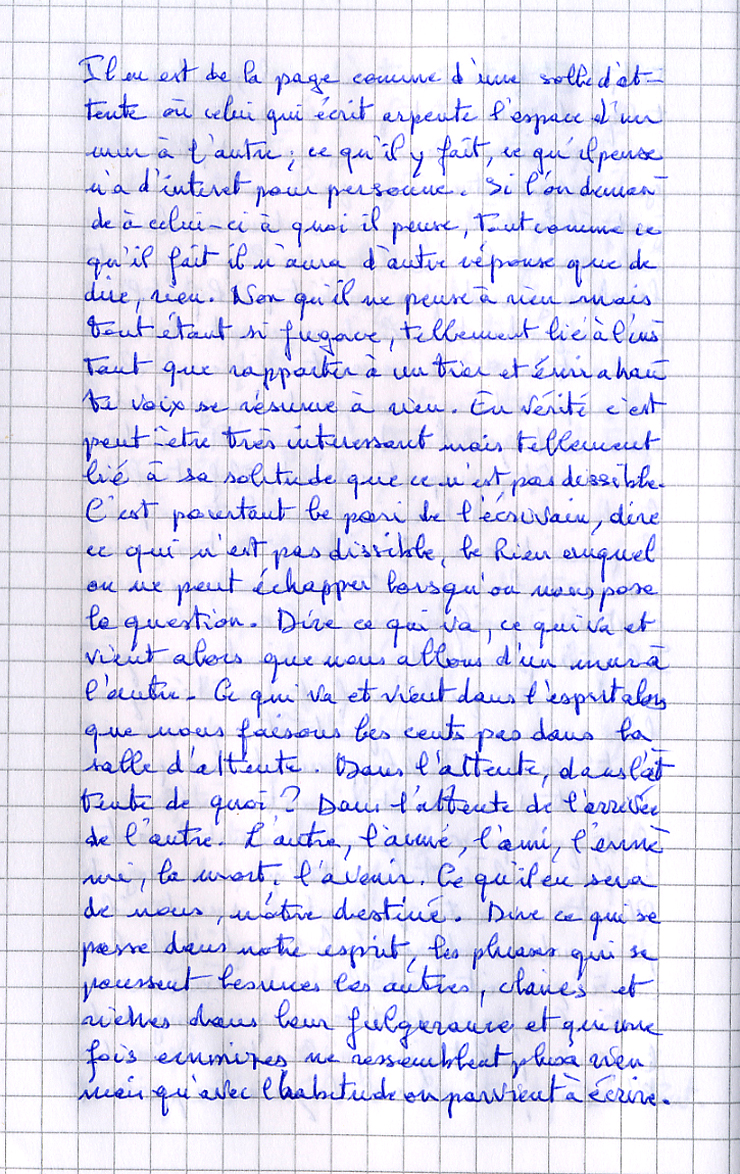 Il en est de la page comme d'une salle d'at-
tente où celui qui écrit arpente l'espace d'un
mur à l'autre ; ce qu'il y fait, ce qu'il pense
n'a d'interet pour personne. Si l'on deman-
de à celui-ci à quoi il pense, tout comme ce
qu'il fait il n'aura d'autre réponse que de
dire, rien. Non qu'il ne pense à rien mais
tout étant si fugace, tellement lié à l'ins-
tant que rapporter à un tiers et à hau-
te voix se résume à rien. En Vérité c'est
peut-etre très interessant mais tellement
lié à sa solitude que ce n'est pas dissible.
C'est pourtant le pari de l'écrivain, dire
ce qui n'est pas dissible, le Rien auquel
on ne peut échapper lorsqu'on nous pose
la question. Dire ce qui va, ce qui va et
vient alors que nous allons d'un mur à
l'autre. Ce qui va et vient dans l'esprit alors
que nous faisons les cents pas dans la
salle d'attente. Dans l'attente, dans l'at-
tente de quoi ? Dans l'attente de l'arrivée
de l'autre. L'autre, l'aimé, l'ami, l'enne-
mi, la mort, l'avenir. Ce qu'il en sera
de nous, nôtre destiné. Dire ce qui se
passe dans notre esprit, les phrases qui se
poussent les unes les autres, claires et
riches dans leur fulgurance et qui une
fois ne ressemblent plus a rien
mais qu'avec l'habitude on parvient à écrire.